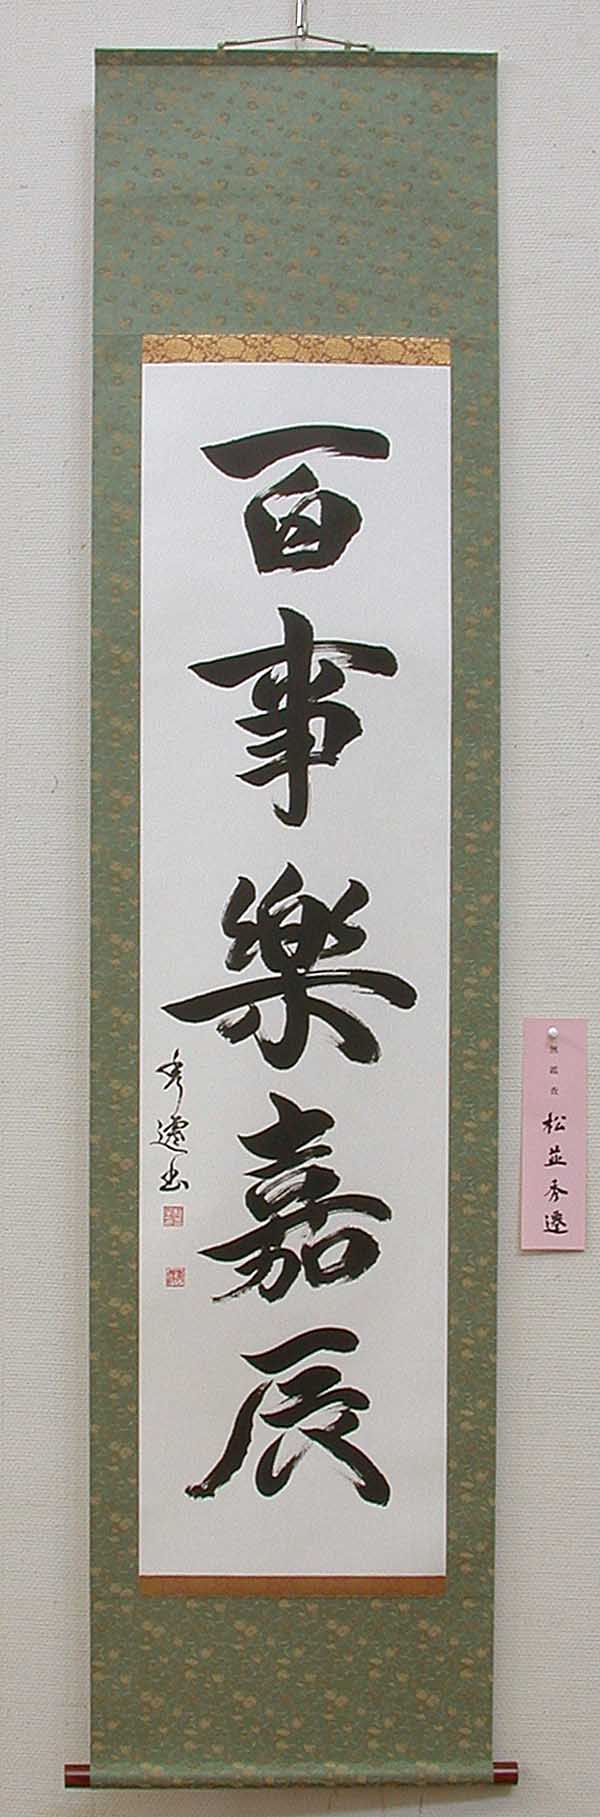 百事樂嘉辰
秀遷書
無鑑査
松並秀遷